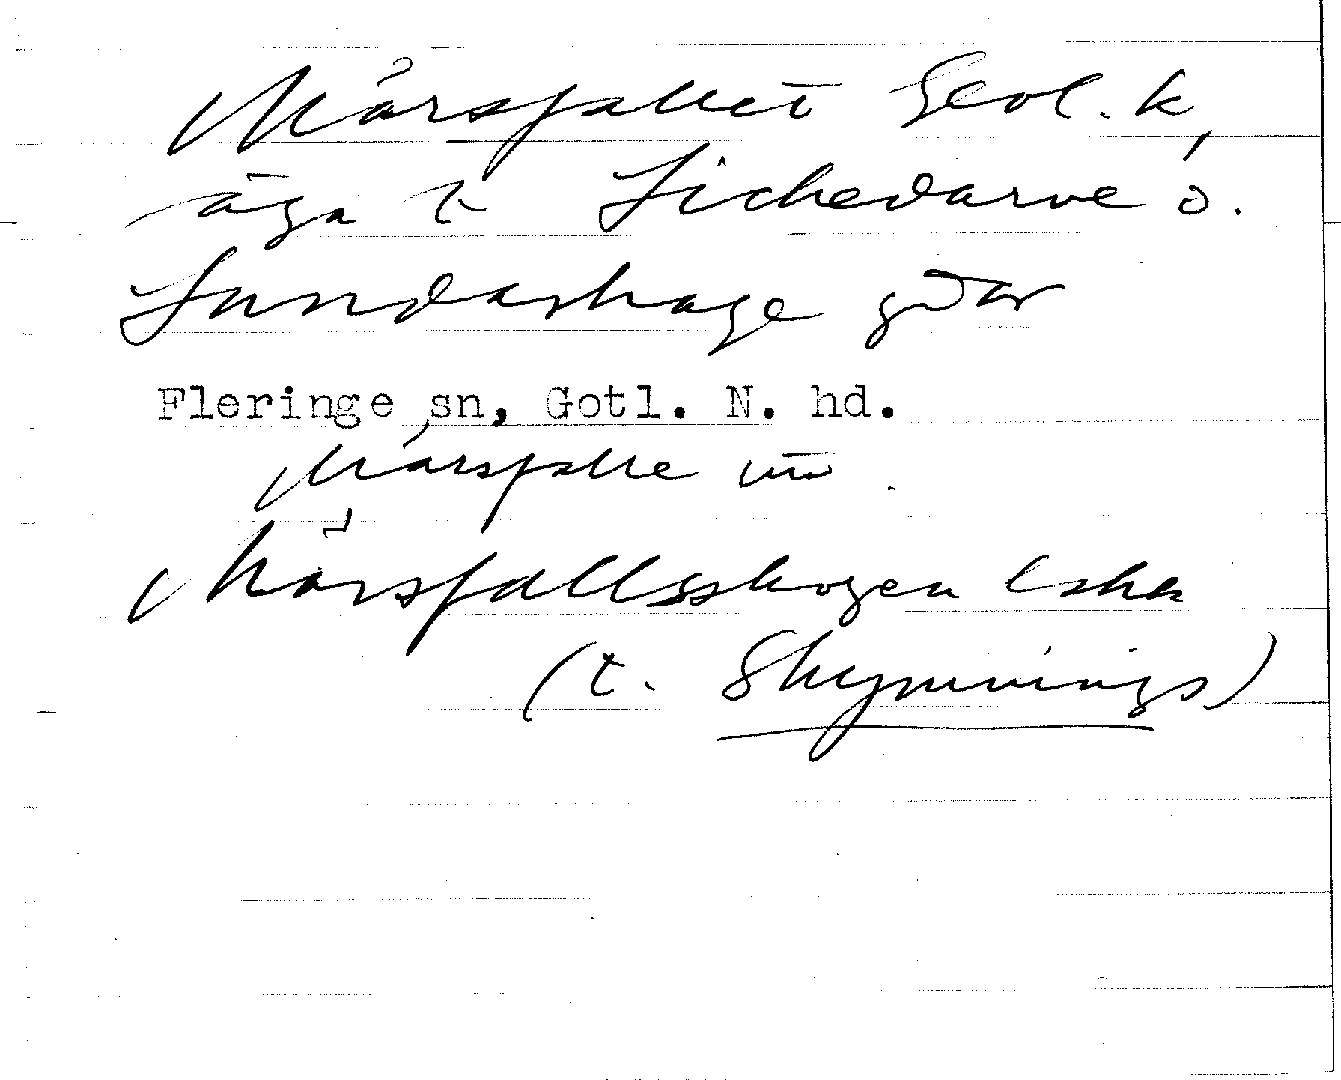 Mårsfallet Geol. k,
äga t Lickedarve o.
Lundarhage gdar
Fleringe sn, Gotl. N. hd.
Mårsfalle
Mårsfallsskogen Eska
(t. Skymnings)